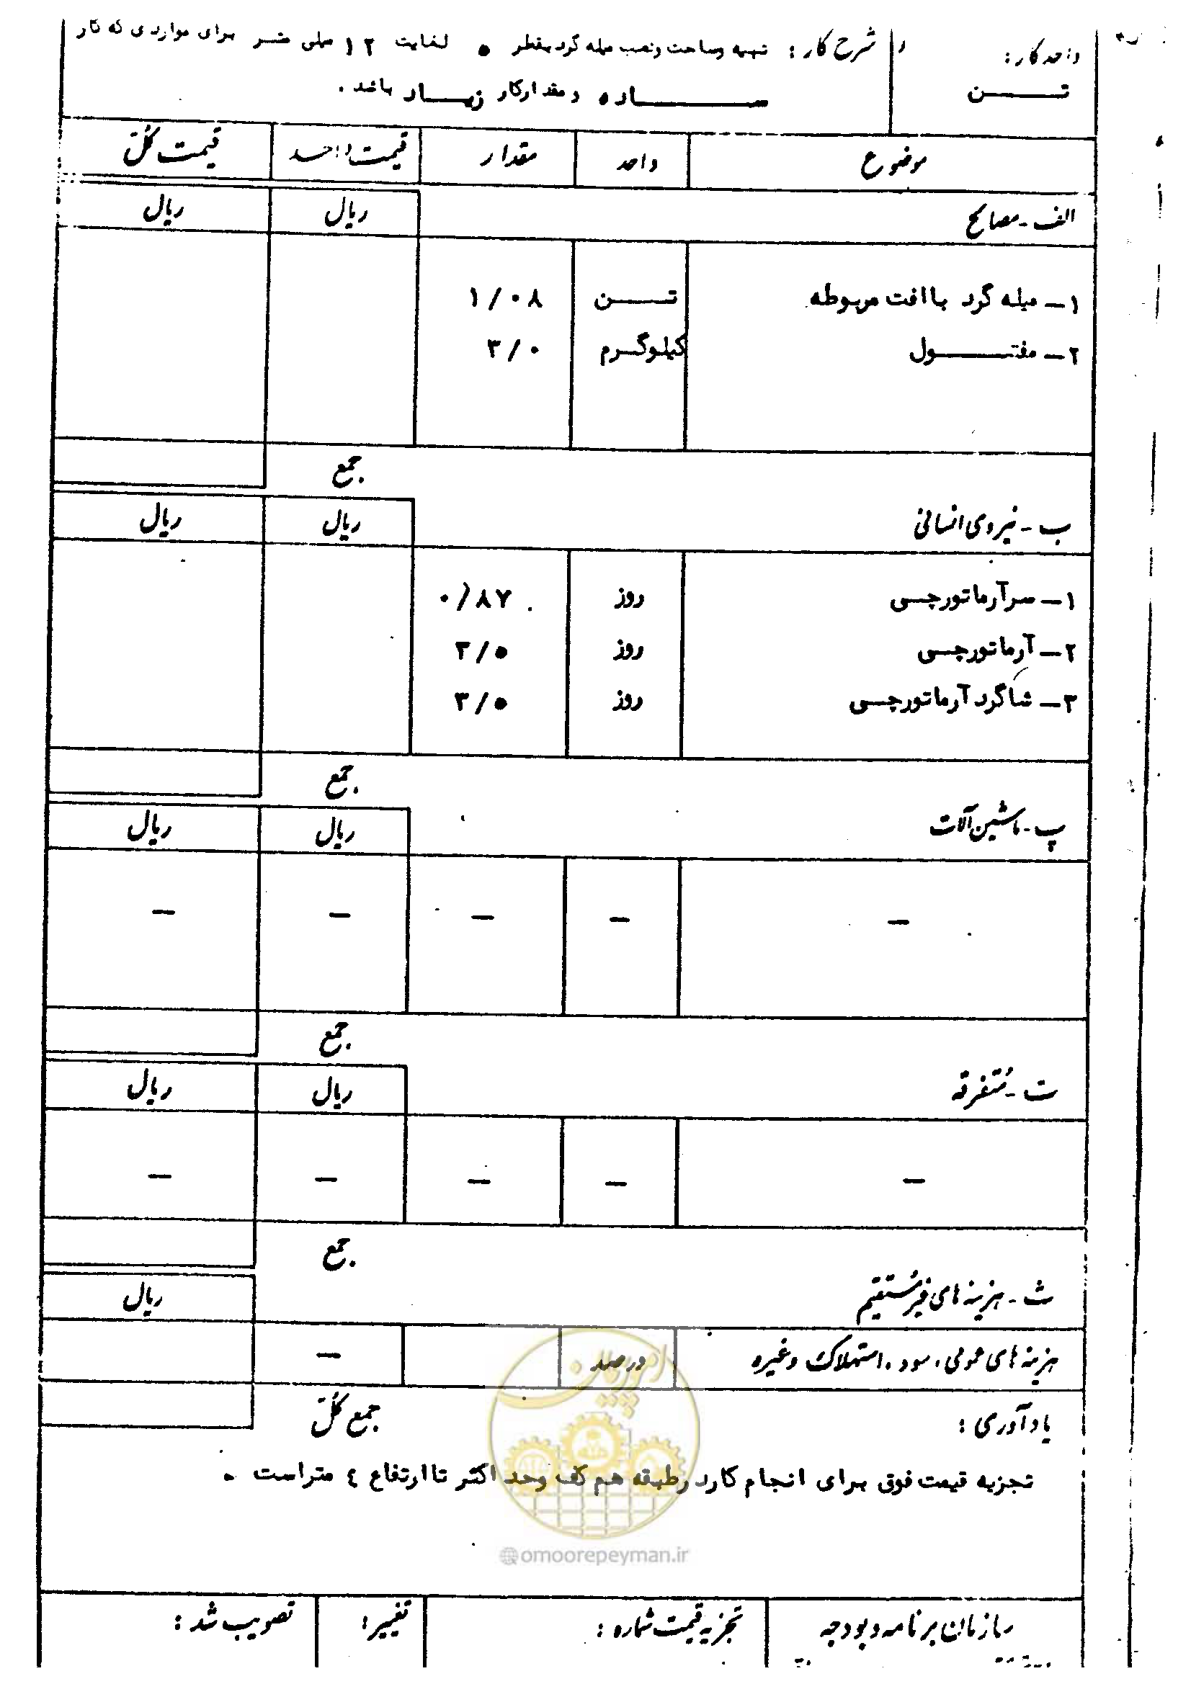 واحد کار:
تــن
شرح کار: تهیه وساخت ونصب میله گرد بقطر ۵ لغایت ۱۲ میلی متــر برای مواردی که کار
ســـــاده ومقدارکار زیــاد باشد.
موضوع واحد مقدار قیمت واحــد قیمت کل
الف - مصالح ریال ریال
۱- میله گرد باافت مربوطه تــن ۱/۰۸
۲- مفتــــول کیلوگــرم ۳/۰
جمع
ب - نیروی انسانی ریال ریال
۱- سرآرماتورچــی روز ۰/۸۷
۲- آرماتورچــی روز ۳/۵
۳- شاگرد آرماتورچــی روز ۳/۵
جمع
پ - ماشین آلات ریال ریال
- - - - -
جمع
ت - متفرقه ریال ریال
- - - - -
جمع
ث - هزینه های غیرمستقیم ریال
هزینه های عمومی، سود، استهلاک وغیره درصد -
یادآوری: جمع کل
تجزیه قیمت فوق برای انجام کاردرطبقه هم کف وحد اکثر تاارتفاع ٤ متراست .
امور پیمان
@omoorepeyman.ir
سازمان برنامه وبودجه تجزیه قیمت شماره: تغییر: تصویب شد: